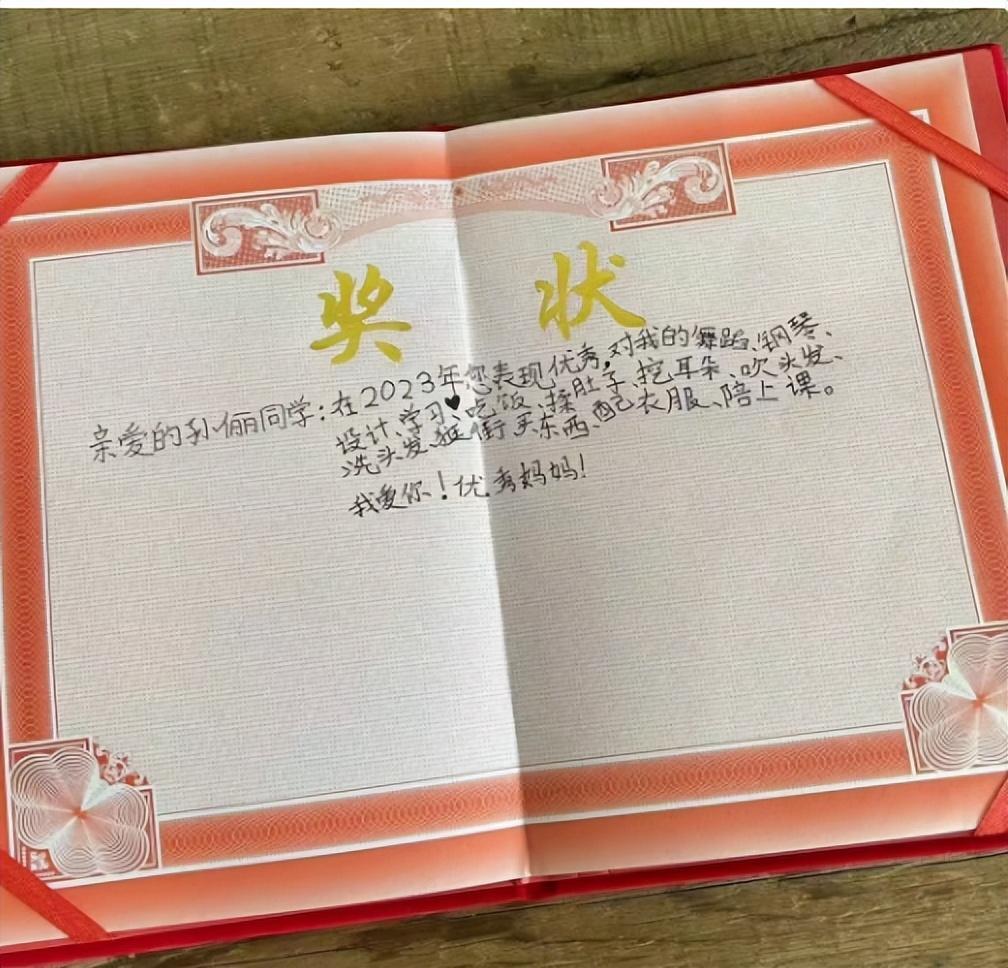 奖状
亲爱的孙俪同学:在2023年您表现优秀,对我的舞蹈、钢琴、
设计、学习、吃饭、揉肚子、挖耳朵、吹头发、
洗头发、逛街买东西、配衣服、陪上课。
我爱你!优秀妈妈!